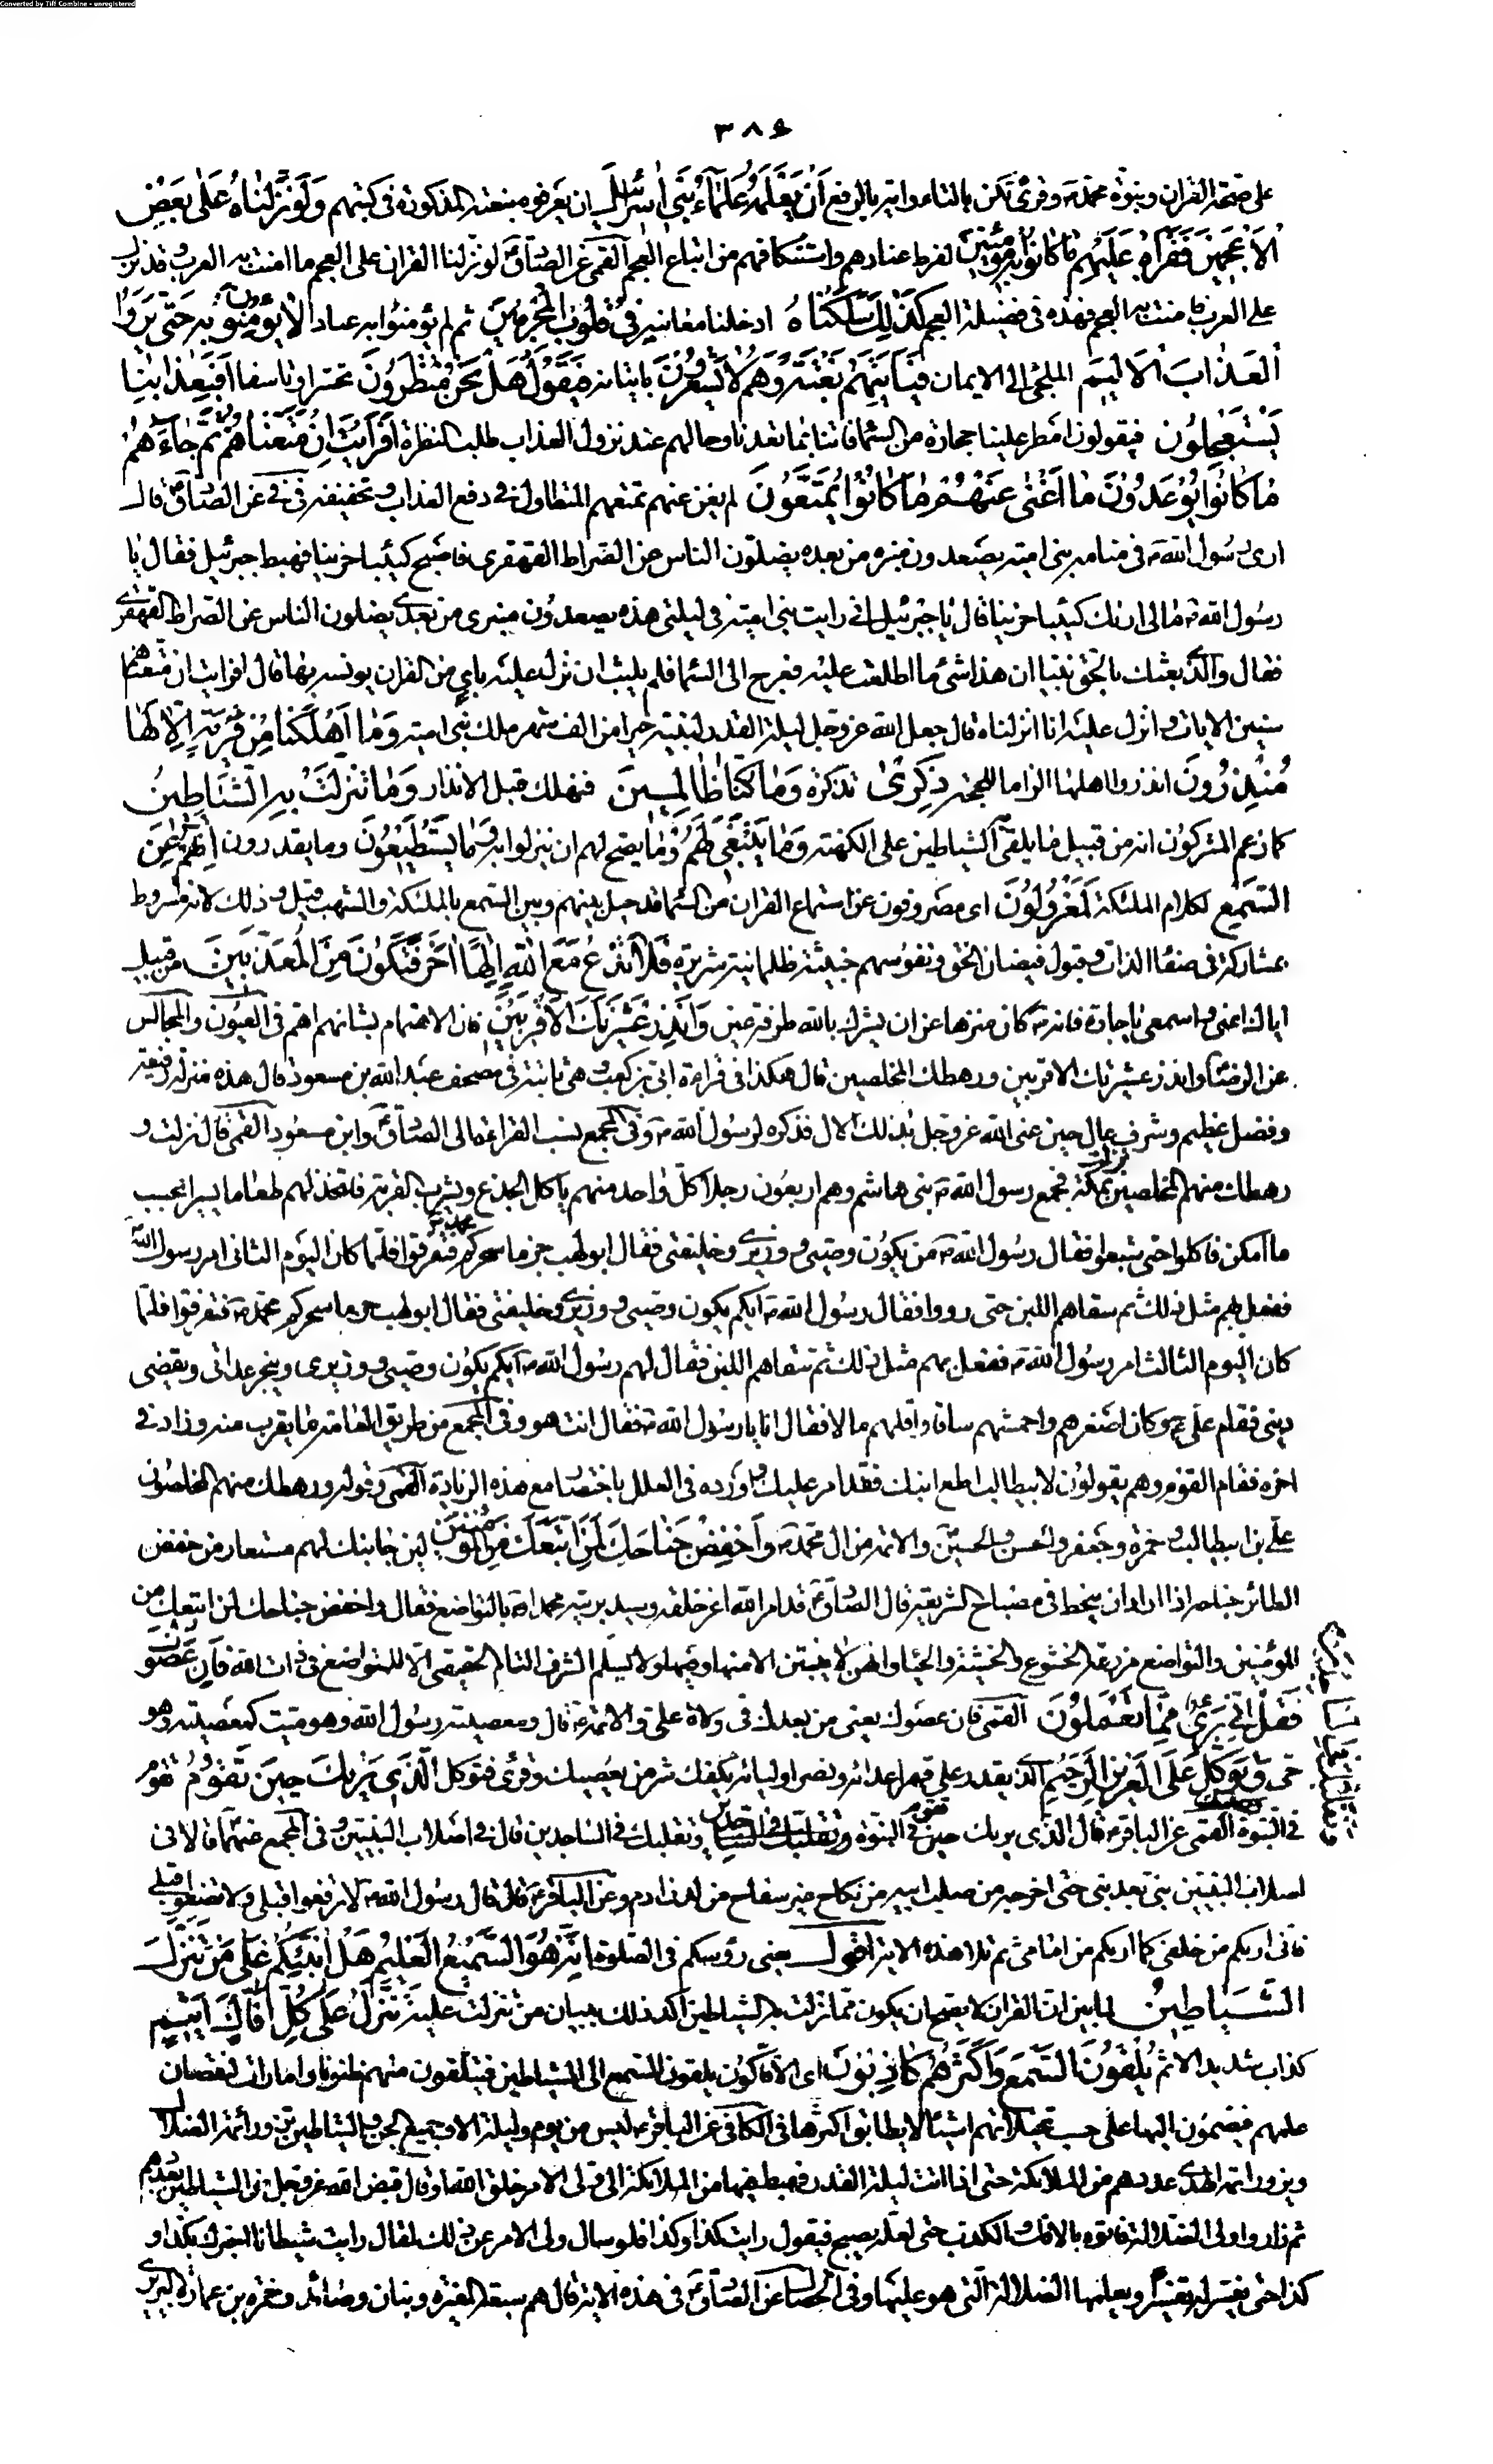 Converted by Tiff Combine - unregistered
٣٨٤
على صحة القران ونبوة محمد ص وقرئ تكن بالتاء واية بالرفع اَنْ يَعْلَمَهُ عُلَمٰاءُ بَنٖى اِسْرٰائٖلَ ان يعرفوه بنعته المذكورة فى كتبهم وَلَوْ نَزَّلْنٰاهُ عَلٰى بَعْضِ
الْاَعْجَمٖينَ فَقَرَاَهُ عَلَيْهِمْ مٰا كٰانُوا بِهٖ مُؤْمِنٖينَ لفرط عنادهم واستنكافهم من اتباع العجم القمى عن الصادق ع لو نزلنا القران على العجم ما امنت به العرب وقد نزل
على العرب فامنت به العجم فهذه فى فضيلة العجم كَذٰلِكَ سَلَكْنٰاهُ ادخلنا معانيه فٖى قُلُوبِ الْمُجْرِمٖينَ ثم لم يؤمنوا به عنادا لٰا يُؤْمِنُونَ بِهٖ حَتّٰى يَرَوُا
الْعَذٰابَ الْاَلٖيمَ الملجئ الى الايمان فَيَاْتِيَهُمْ بَغْتَةً وَهُمْ لٰا يَشْعُرُونَ باتيانه فَيَقُولُوا هَلْ نَحْنُ مُنْظَرُونَ تحسرا وتاسفا اَفَبِعَذٰابِنٰا
يَسْتَعْجِلُونَ فيقولون امطر علينا حجارة من السماء فاتنا بما تعدنا وحالهم عند نزول العذاب طلب النظرة اَفَرَاَيْتَ اِنْ مَتَّعْنٰاهُمْ سِنٖينَ ثُمَّ جٰاءَهُمْ
مٰا كٰانُوا يُوعَدُونَ مٰا اَغْنٰى عَنْهُمْ مٰا كٰانُوا يُمَتَّعُونَ لم يغن عنهم تمتعهم المتطاول فى دفع العذاب وتخفيفه فى عن الصادق ع قال
ارى رسول الله ص فى منامه بنى امية يصعدون منبره من بعده يضلون الناس عن الصراط القهقرى فاصبح كئيبا حزينا فهبط جبرئيل فقال يا
رسول الله ص مالى اراك كئيبا حزينا قال يا جبرئيل انى رايت بنى امية فى ليلتى هذه يصعدون منبرى من بعدى يضلون الناس عن الصراط القهقرى
فقال والذى بعثك بالحق نبيا ان هذا شئ ما اطلعت عليه فعرج الى السماء فلم يلبث ان نزل عليه باى من القران يونسه بها قال افرايت ان متعناهم
سنين الايات وانزل عليه انا انزلناه قال جعل الله عز وجل ليلة القدر لنبيه خيرا من الف شهر ملك بنى امية وَمٰا اَهْلَكْنٰا مِنْ قَرْيَةٍ اِلّٰا لَهٰا
مُنْذِرُونَ انذروا اهلها الزاما للحجة ذِكْرٰى تذكرة وَمٰا كُنّٰا ظٰالِمٖينَ فنهلك قبل الانذار وَمٰا تَنَزَّلَتْ بِهِ الشَّيٰاطٖينُ
كما زعم المشركون انه من قبيل ما يلقى الشياطين على الكهنة وَمٰا يَنْبَغٖى لَهُمْ وما يصح لهم ان ينزلوا به وَمٰا يَسْتَطٖيعُونَ وما يقدرون اِنَّهُمْ عَنِ
السَّمْعِ لكلام الملئكة لَمَعْزُولُونَ اى مصروفون عن استماع القران من السماء قد حيل بينهم وبين السمع بالملئكة والشهب قيل وذلك لانه مشروط
بمشاركة فى صفاء الذات وقبول فيضان الحق ونفوسهم خبيثة ظلمانية شريرة فَلٰا تَدْعُ مَعَ اللّٰهِ اِلٰهًا اٰخَرَ فَتَكُونَ مِنَ الْمُعَذَّبٖينَ من قبيل
اياك اعنى واسمعى يا جارة فانه ص كان منزها عن ان يشرك بالله طرفة عين وَاَنْذِرْ عَشٖيرَتَكَ الْاَقْرَبٖينَ فان الاهتمام بشانهم اهم فى العيون والمجالس
عن الرضا ع وانذر عشيرتك الاقربين ورهطك المخلصين قال هكذا فى قراءة ابى بن كعب وهى ثابتة فى مصحف عبد الله بن مسعود قال هذه منزلة رفيعة
وفضل عظيم وشرف عال حين عنى الله عز وجل بذلك الال فذكره لرسول الله ص وفى المجمع نسب القراءة الى الصادق ع وابن مسعود القمى قال نزلت و
رهطك منهم المخلصين نزلت بمكة فجمع رسول الله ص بنى هاشم وهم اربعون رجلا كل واحد منهم ياكل الجذع ويشرب القربة فاتخذ لهم طعاما يسيرا بحسب
ما امكن فاكلوا حتى شبعوا فقال رسول الله ص من يكون وصيى ووزيرى وخليفتى فقال ابو لهب جزما سحركم محمد ص فتفرقوا فلما كان اليوم الثانى امر رسول الله ص
ففعل بهم مثل ذلك ثم سقاهم اللبن حتى رووا فقال رسول الله ص ايكم يكون وصيى ووزيرى وخليفتى فقال ابو لهب جزما سحركم محمد ص فتفرقوا فلما
كان اليوم الثالث امر رسول الله ص ففعل بهم مثل ذلك ثم سقاهم اللبن فقال لهم رسول الله ص ايكم يكون وصيى ووزيرى وينجز عداتى ويقضى
دينى فقام على ع وكان اصغرهم واحمشهم ساقا واقلهم مالا فقال انا يا رسول الله ص فقال انت هو وفى المجمع من طريق العامة ما يقرب منه وزاد فى
اخره فقام القوم وهم يقولون لابيطالب اطع ابنك فقد امر عليك واورده فى العلل باختصار مع هذه الزيادة القمى وقوله ورهطك منهم المخلصون
على بن ابيطالب وحمزة وجعفر والحسن والحسين والائمة من ال محمد ص وَاخْفِضْ جَنٰاحَكَ لِمَنِ اتَّبَعَكَ مِنَ الْمُؤْمِنٖينَ لين جانبك لهم مستعار من خفض
الطائر جناحه اذا اراد ان ينحط فى مصباح الشريعة قال الصادق ع قد امر الله اعز خلقه وسيد بريته محمدا ص بالتواضع فقال واخفض جناحك لمن اتبعك من
المؤمنين والتواضع مزرعة الخشوع والخشية والحياء وانهن لا ينبتن الا منها وفيها ولا يسلم الشرف التام الحقيقى الا للمتواضع فى ذات الله فَاِنْ عَصَوْكَ
فَقُلْ اِنّٖى بَرٖىءٌ مِمّٰا تَعْمَلُونَ القمى فان عصوك يعنى من بعدك فى ولاة على ع والائمة ع قال ومعصيته رسول الله وهو ميت كمعصيته وهو
حى وَتَوَكَّلْ عَلَى الْعَزٖيزِ الرَّحٖيمِ الذى يقدر على قهر اعدائه ونصر اوليائه يكفك شر من يعصيك وقرئ فتوكل الَّذٖى يَرٰيكَ حٖينَ تَقُومُ تقوم
فى النبوة القمى عن الباقر ع قال الذى يريك حين تقوم فى النبوة وتقلبك فى الساجدين قال فى اصلاب النبيين وفى المجمع عنهما ع قالا فى
اصلاب النبيين نبى بعد نبى حتى اخرجه من صلب ابيه من نكاح غير سفاح من لدن ادم وعن الباقر ع قال قال رسول الله ص لا ترفعوا قبلى ولا تضعوا قبلى
فانى اريكم من خلفى كما اريكم من امامى ثم تلا هذه الاية اقول يعنى رؤسكم فى الصلوة اِنَّهُ هُوَ السَّمٖيعُ الْعَلٖيمُ هَلْ اُنَبِّئُكُمْ عَلٰى مَنْ تَنَزَّلُ
الشَّيٰاطٖينُ لما بين ان القران لا يصح ان يكون مما نزلت به الشياطين اكد ذلك ببيان من تنزلت عليه تَنَزَّلُ عَلٰى كُلِّ اَفّٰاكٍ اَثٖيمٍ
كذاب شديد الاثم يُلْقُونَ السَّمْعَ وَاَكْثَرُهُمْ كٰاذِبُونَ اى الافاكون يلقون السمع الى الشياطين فيتلقون منهم ظنونا وامارات لنقصان
علمهم فيضمون اليها على حسب تخيلاتهم اشياء لا يطابق اكثرها فى الكافى عن الباقر ع ليس من يوم وليلة الا وجميع الجن والشياطين تزور ائمة الضلال
ويزور ائمة الهدى عددهم من الملائكة حتى اذا اتت ليلة القدر فهبط فيها من الملائكة الى ولى الامر خلق الله او قال قيض الله عز وجل من الشياطين بعددهم
ثم زاروا ولى الضلالة فاتوه بالافك والكذب حتى لعله يصبح فيقول رايت كذا وكذا فلو سال ولى الامر عن ذلك لقال رايت شيطانا اخبرك بكذا و
كذا حتى يفسر له تفسيرا ويعلمها الضلالة التى هو عليها وفى الخصال عن الصادق ع فى هذه الاية قال هم سبعة المغيرة وبنان وصائد وحمزة بن عمارة البربرى